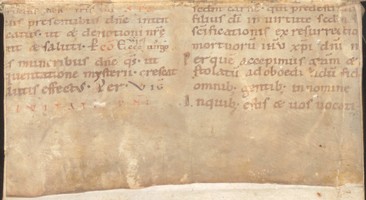 us presentibus dne inten
catus. ut & devotioni nre
nt & saluti. Co Ecce virgo
s muneribus dne qs. ut
quentatione mysterii. crescat
lutis effectus. Per.
sedm carne. qui predesti
filius di in virtute sedm
scificationis ex resurrectio
mortuoru ihu xpi dni n
Per que accepimus gram &
stolatu ad oboediendu fid
omnib; gentib; in nomine
In quib; estis & vos vocati